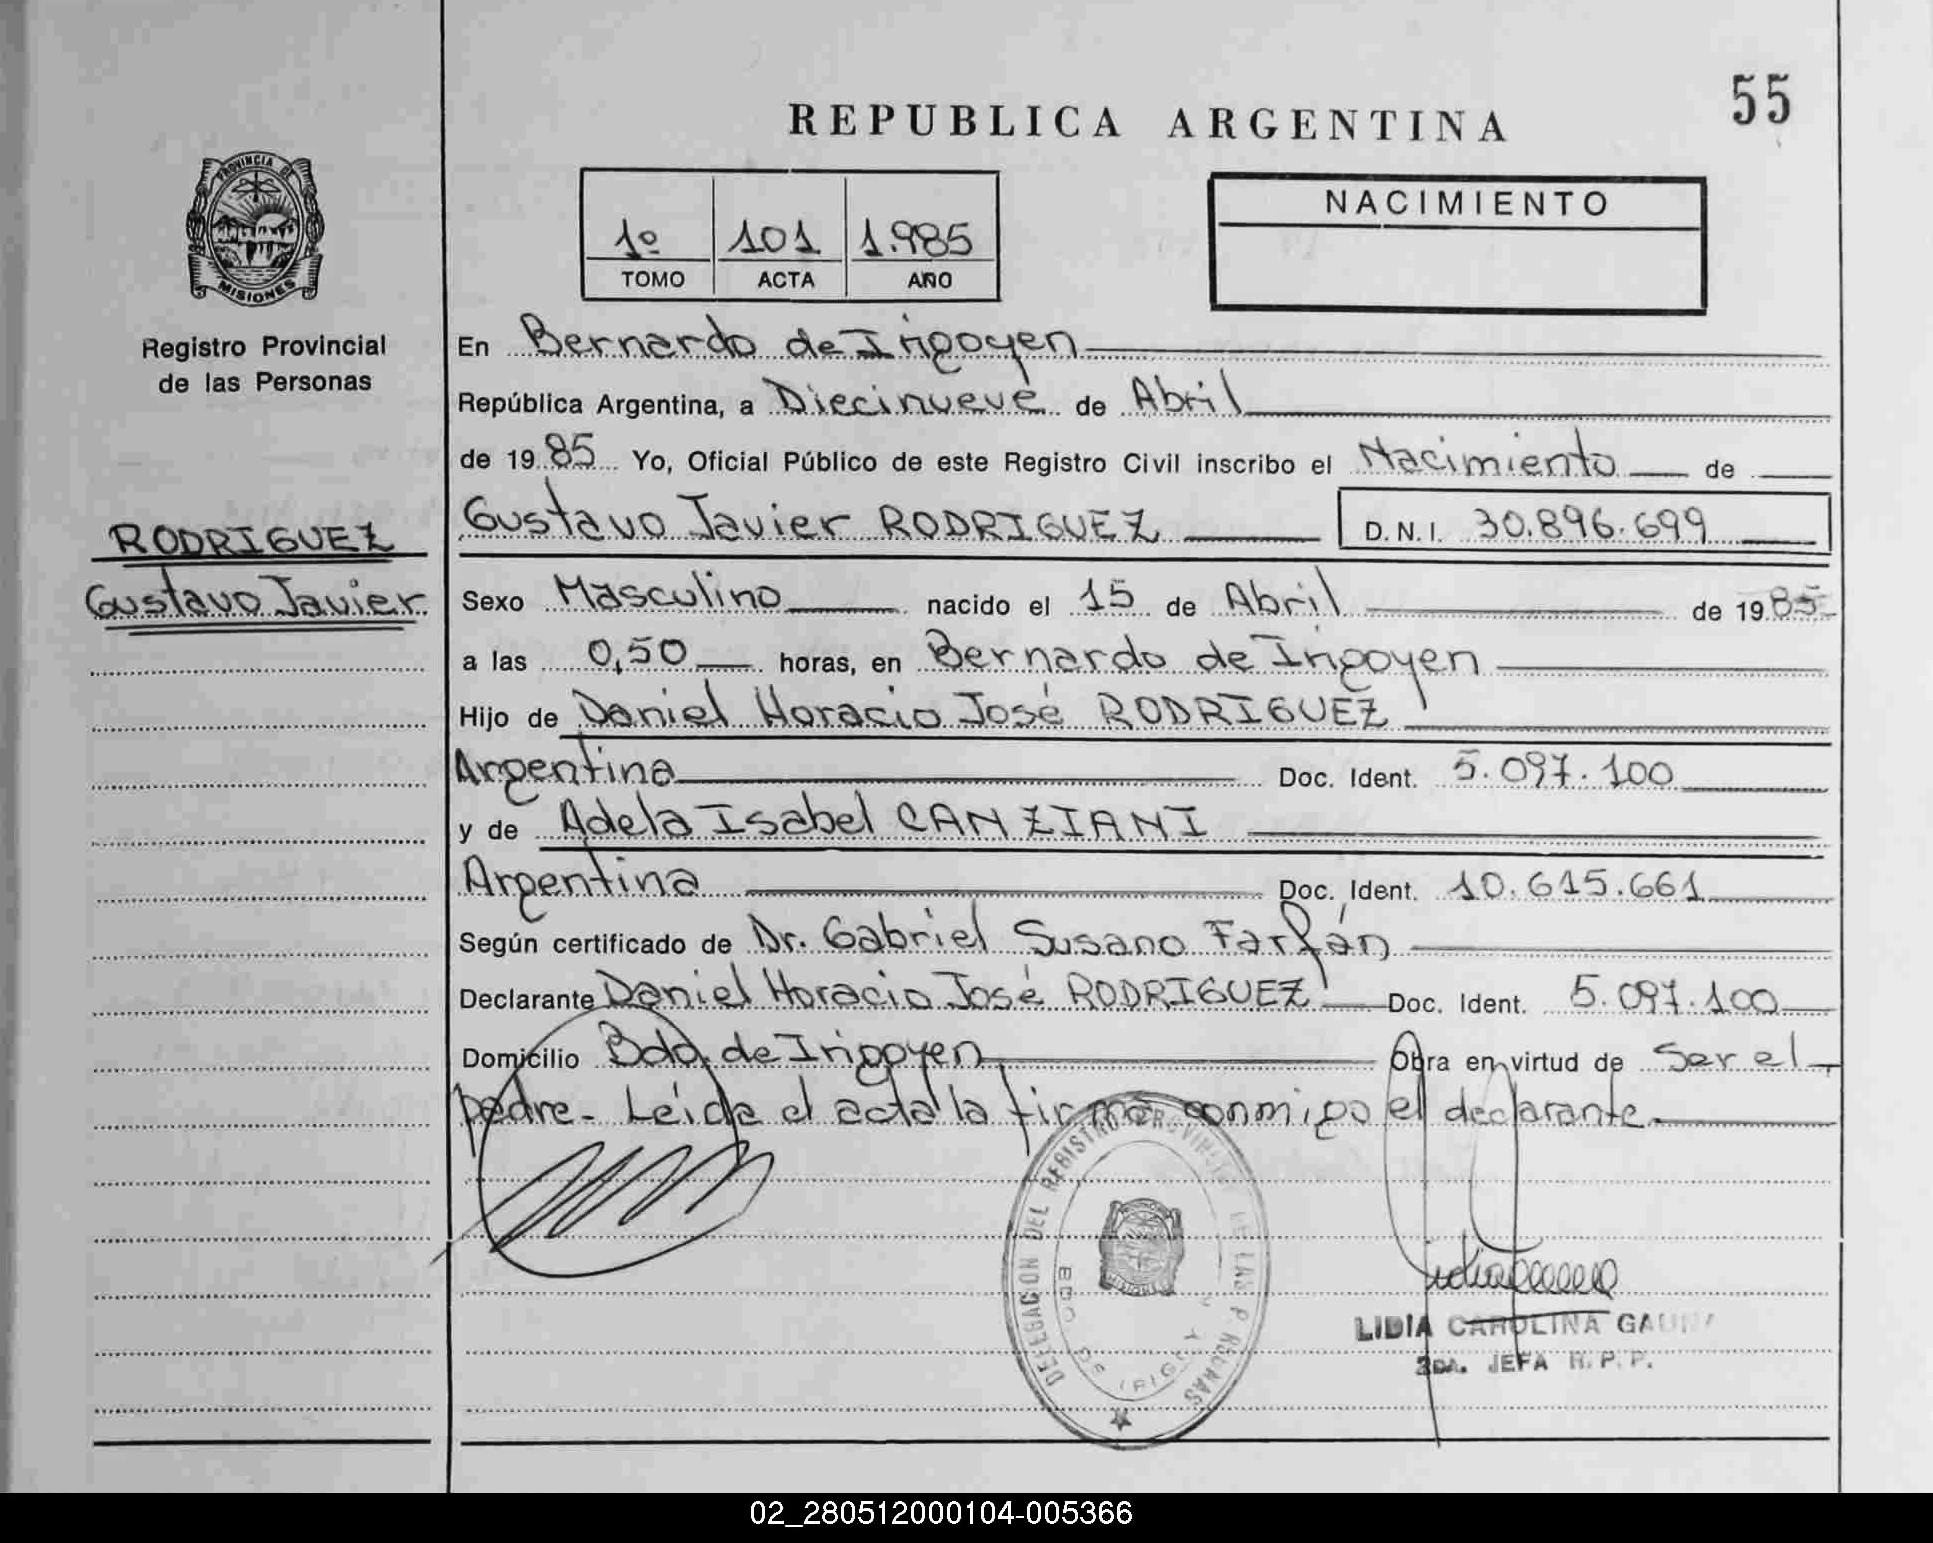 55
REPUBLICA ARGENTINA
PROVINCIA DE
MISIONES
Registro Provincial
de las Personas
RODRIGUEZ
Gustavo Javier
1º 101 1.985
TOMO ACTA AÑO
NACIMIENTO
En Bernardo de Irigoyen
República Argentina, a Diecinueve de Abril
de 1985 Yo, Oficial Público de este Registro Civil inscribo el Nacimiento de
Gustavo Javier RODRIGUEZ D.N.I. 30.896.699
Sexo Masculino nacido el 15 de Abril de 1985
a las 0,50 horas, en Bernardo de Irigoyen
Hijo de Daniel Horacio José RODRIGUEZ
Argentina Doc. Ident. 5.097.100
y de Adela Isabel CANZIANI
Argentina Doc. Ident. 10.615.661
Según certificado de Dr. Gabriel Susano Farfán
Declarante Daniel Horacio José RODRIGUEZ Doc. Ident. 5.097.100
Domicilio Bdo. de Irigoyen Obra en virtud de Ser el
padre - Leída el acta la firma conmigo el declarante
DELEGACION DEL REGISTRO PROVINCIAL DE LAS PERSONAS
BDO DE IRIGOYEN
MISIONES
LIDIA CAROLINA
JEFA R. P. P.
02_280512000104-005366